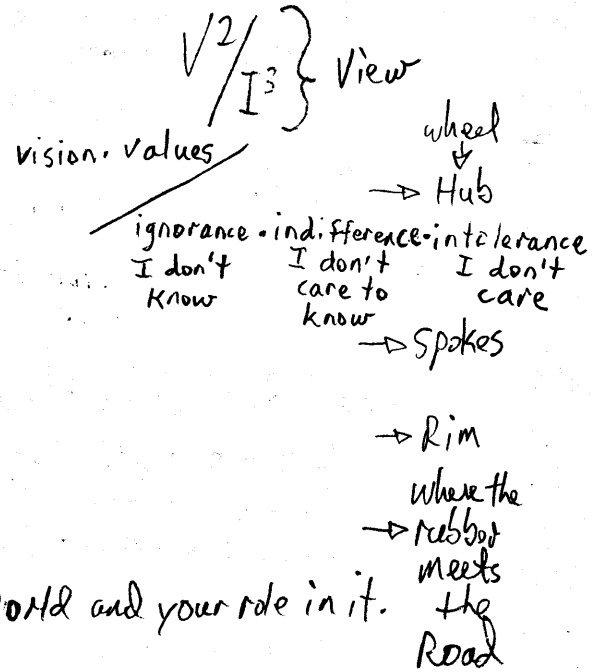 V²/I³ } View
vision · values
ignorance · indifference · intolerance
I don't know
I don't care to know
I don't care
wheel
→ Hub
→ Spokes
→ Rim
where the
→ rubber
meets
the
Road
orld and your role in it.